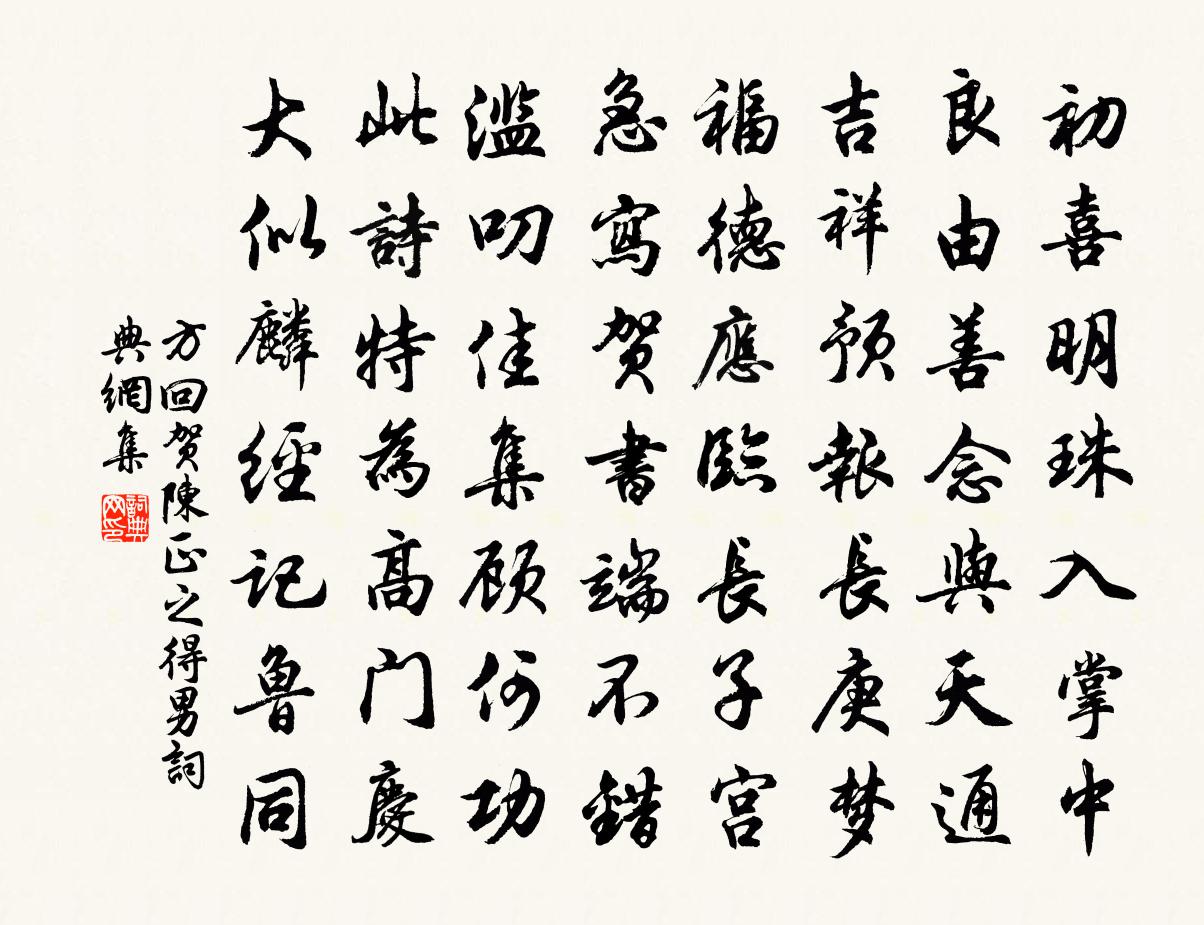 初喜明珠入掌中
良由善念與天通
吉祥預報長庚梦
福德應臨長子宮
急寫贺書端不錯
濫叨佳集顾何功
此詩特為高门慶
大似麟經記魯同
方回贺陳正之得男詞
典網集
詞典网印